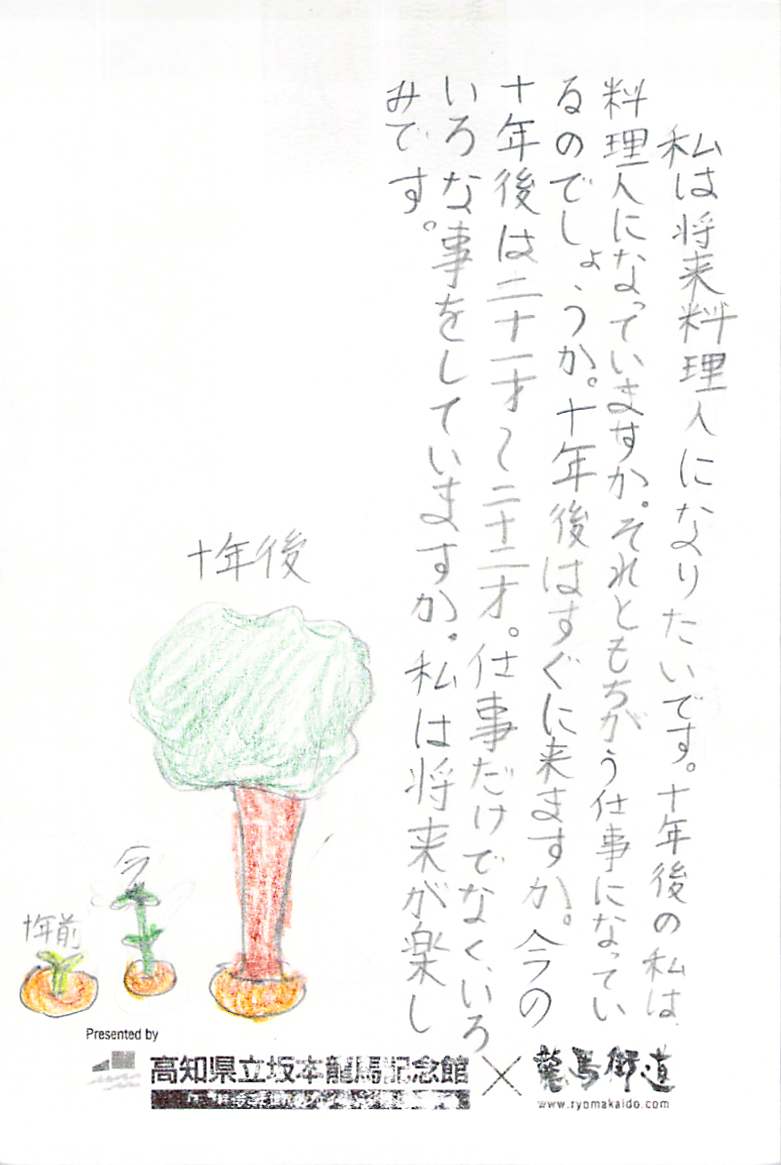 私は将来料理人になりたいです。十年後の私は
料理人になっていますか。それともちがう仕事になってい
るのでしょうか。十年後はすぐに来ますか。今の
十年後は二十一才～二十二才。仕事だけでなく、いろ
いろな事をしていますか。私は将来が楽し
みです。
十年後
今
十年前
Presented by
高知県立坂本龍馬記念館 × 龍馬街道
www.ryomakaido.com